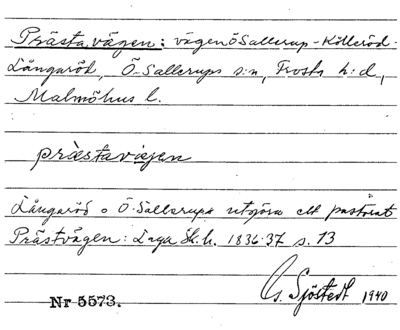 Prästavägen: vägen Ö Sallerup - Kölleröd -
Långaröd, Ö-Sallerups s:n, Frosta h:d,
Malmöhus l.
prästaväjen
Långaröd o Ö-Sallerups utgöra ett pastorat
Prästvägen: Laga Sk.h. 1836-37 s. 13
Nr 5573.
Gs. Sjöstedt 1940